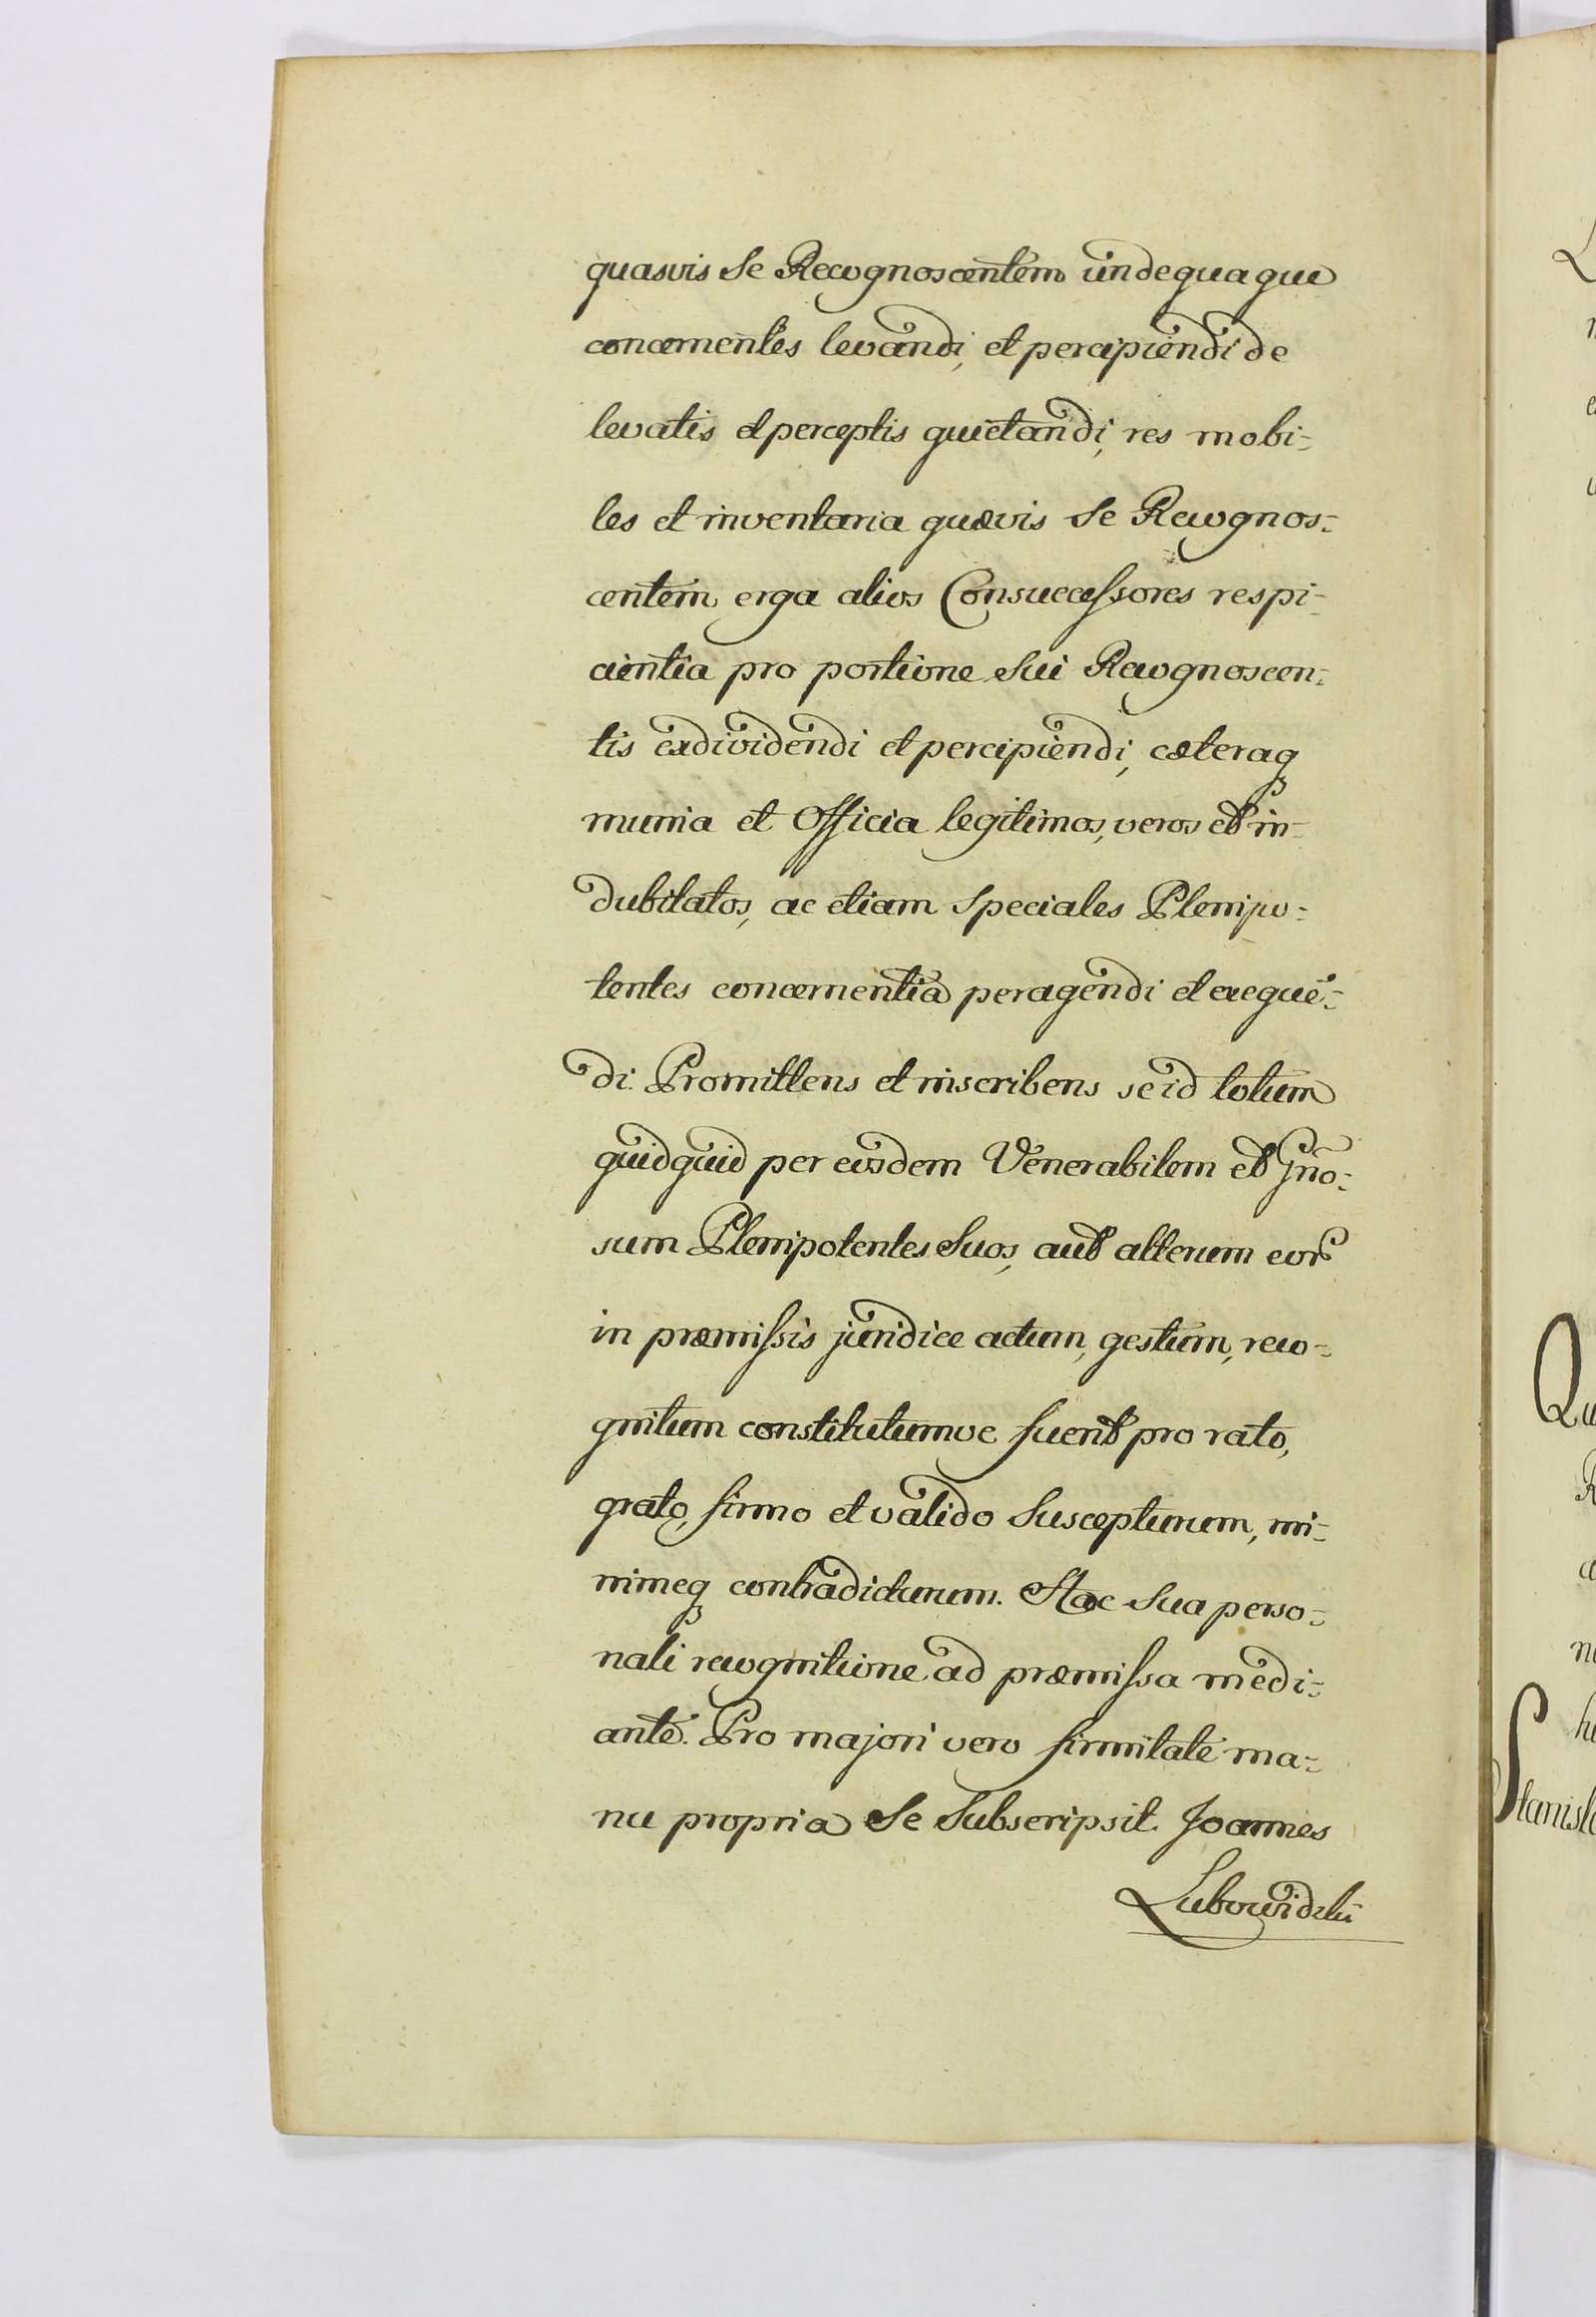 quasvis Se Recognoscentem undequaque
concernentes levandi, et percipiendi de
levatis et perceptis quietandi, res mobi-
les et inventaria quævis Se Recognos-
centem erga alios Consuccessores respi-
cientia pro portione Sui Recognoscen-
tis exdividendi et percipiendi, cæteraq
munia et Officia legitimos, veros et in-
dubitatos, ac etiam Speciales Plenipo-
tentes concernentia peragendi et exequē-
di. Promittens et inscribens se id totum
quidquid per eosdem Venerabilem et Gn̄o-
sum Plenipotentes Suos, aut alterum eor̄
in præmissis juridice actum, gestum, reco-
gnitum constitutumve fuerit pro rato,
grato, firmo et valido Suscepturum, mi-
nimeq contradicturum. Hac Sua perso-
nali recognitione ad præmissa medi-
ante. Pro majori vero firmitate ma-
nu propria Se Subscripsit. Joannes
Lubowidzki